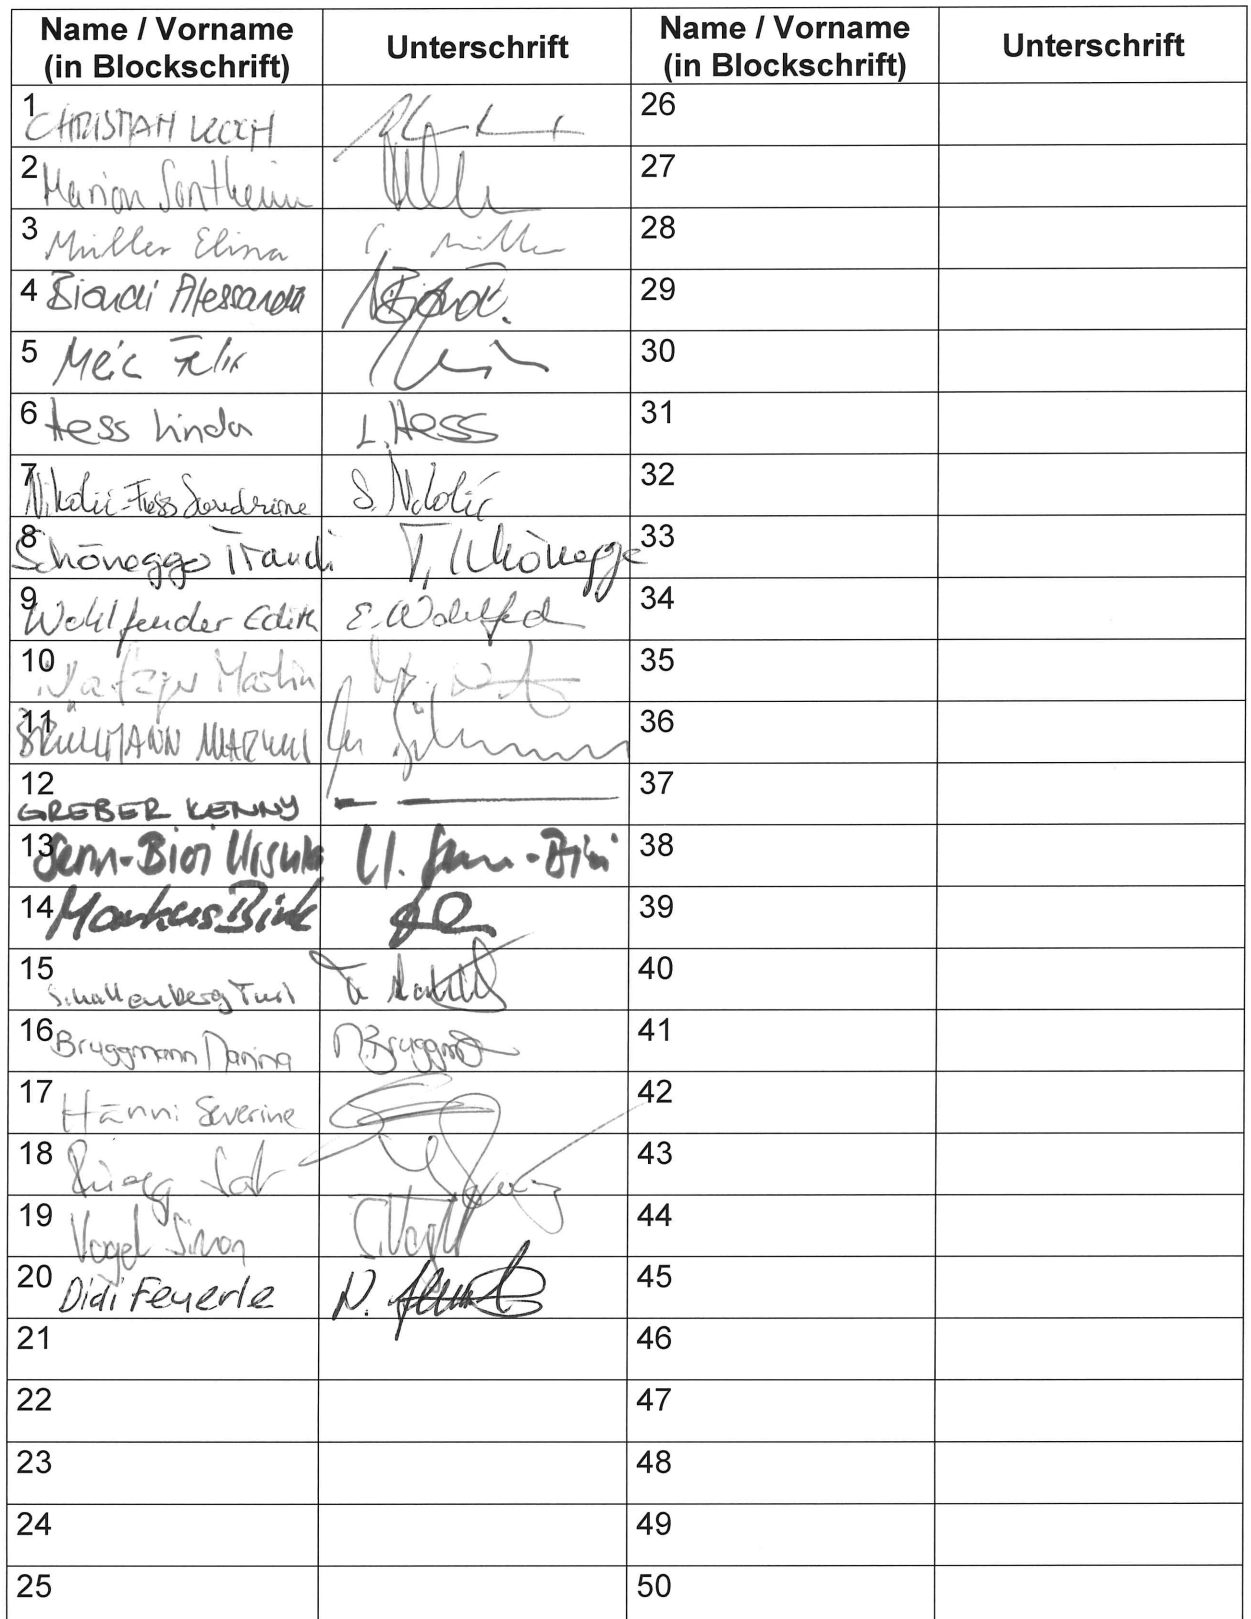 Name / Vorname
(in Blockschrift)
Unterschrift
Name / Vorname
(in Blockschrift)
Unterschrift
1 CHRISTIAN KOCH
26
2 Marion Sontheim
27
3 Müller Elina
28
4 Biondi Alessandra
29
5 Meic Felix
30
6 Hess Linda L. Hess
31
7 Nikolić-Fuss Sandrine S. Nikolić
32
8 Schönegge Traudi T. Schönegge
33
9 Wohlfender Edith E. Wohlfend
34
10 Martin
35
11 BRÜLLMANN MARKUS
36
12 GREBER KENNY
37
13 Senn-Bieri Ursula U. Senn-Bieri
38
14 Markus Birk
39
15 Schallenberg Turi
40
16 Bruggmann Marina M. Bruggm
41
17 Hänni Severine
42
18 Rüegg
43
19 Vogel Simon S. Vogel
44
20 Didi Feuerle D.
45
21
46
22
47
23
48
24
49
25
50